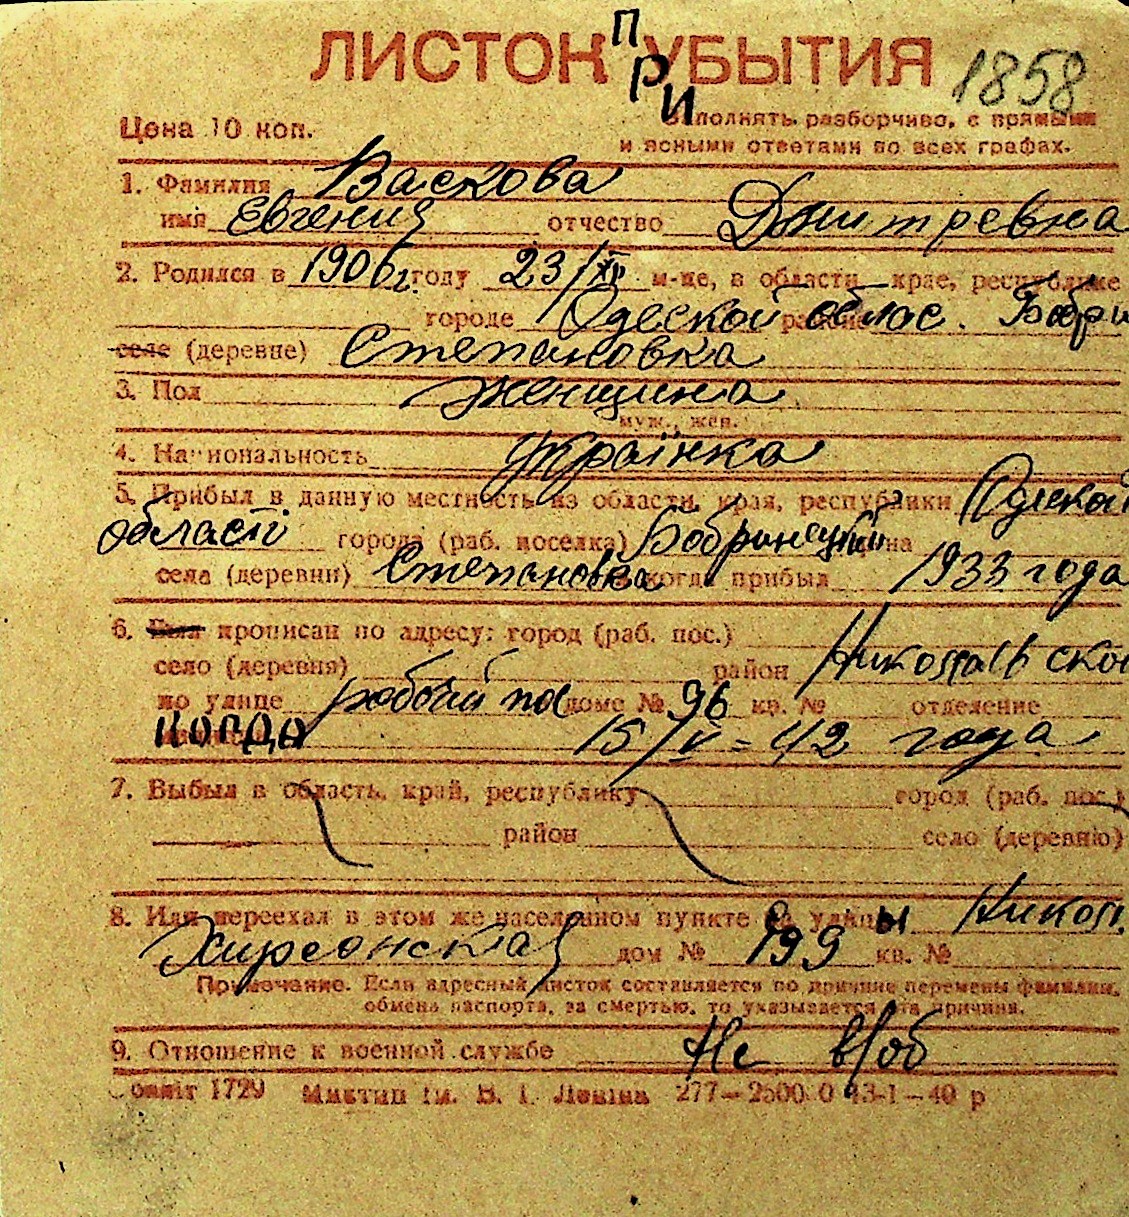 ЛИСТОК ПРИУБЫТИЯ
1858
Цена 10 коп.
Заполнять разборчиво, с прямыми
и ясными ответами по всех графах.
1. Фамилия Васкова
имя Евгения отчество Дмитревна
2. Родился в 1906 г. году 23/XII м-це, в области, крае, республике
городе Одеской облас. Бобри
селе (деревне) Степановка
3. Пол женщина
муж., жен.
4. Национальность українка
5. Прибыл в данную местность из области, края, республики Одеской
області города (раб. поселка) Бобринецкий
села (деревни) Степановка когда прибыл 1933 года
6. Был прописан по адресу: город (раб. пос.)
село (деревня) район Николаевской
по улице рабочий пос доме № 96 кв. № отделение
КОГДА 15/V-42 года
7. Выбыл в область, край, республику город (раб. пос.)
район село (деревню)
8. Или переехал в этом же населенном пункте на улицы Никоп.
Хирсонская дом № 199 кв. №
Примечание. Если адресный листок составляется по причине перемены фамилии,
обмена паспорта, за смертью, то указывается эта причина.
9. Отношение к военной службе Не в/об
1729 Миктип ім. В. І. Леніна 277—2500.0 43-1—40 р